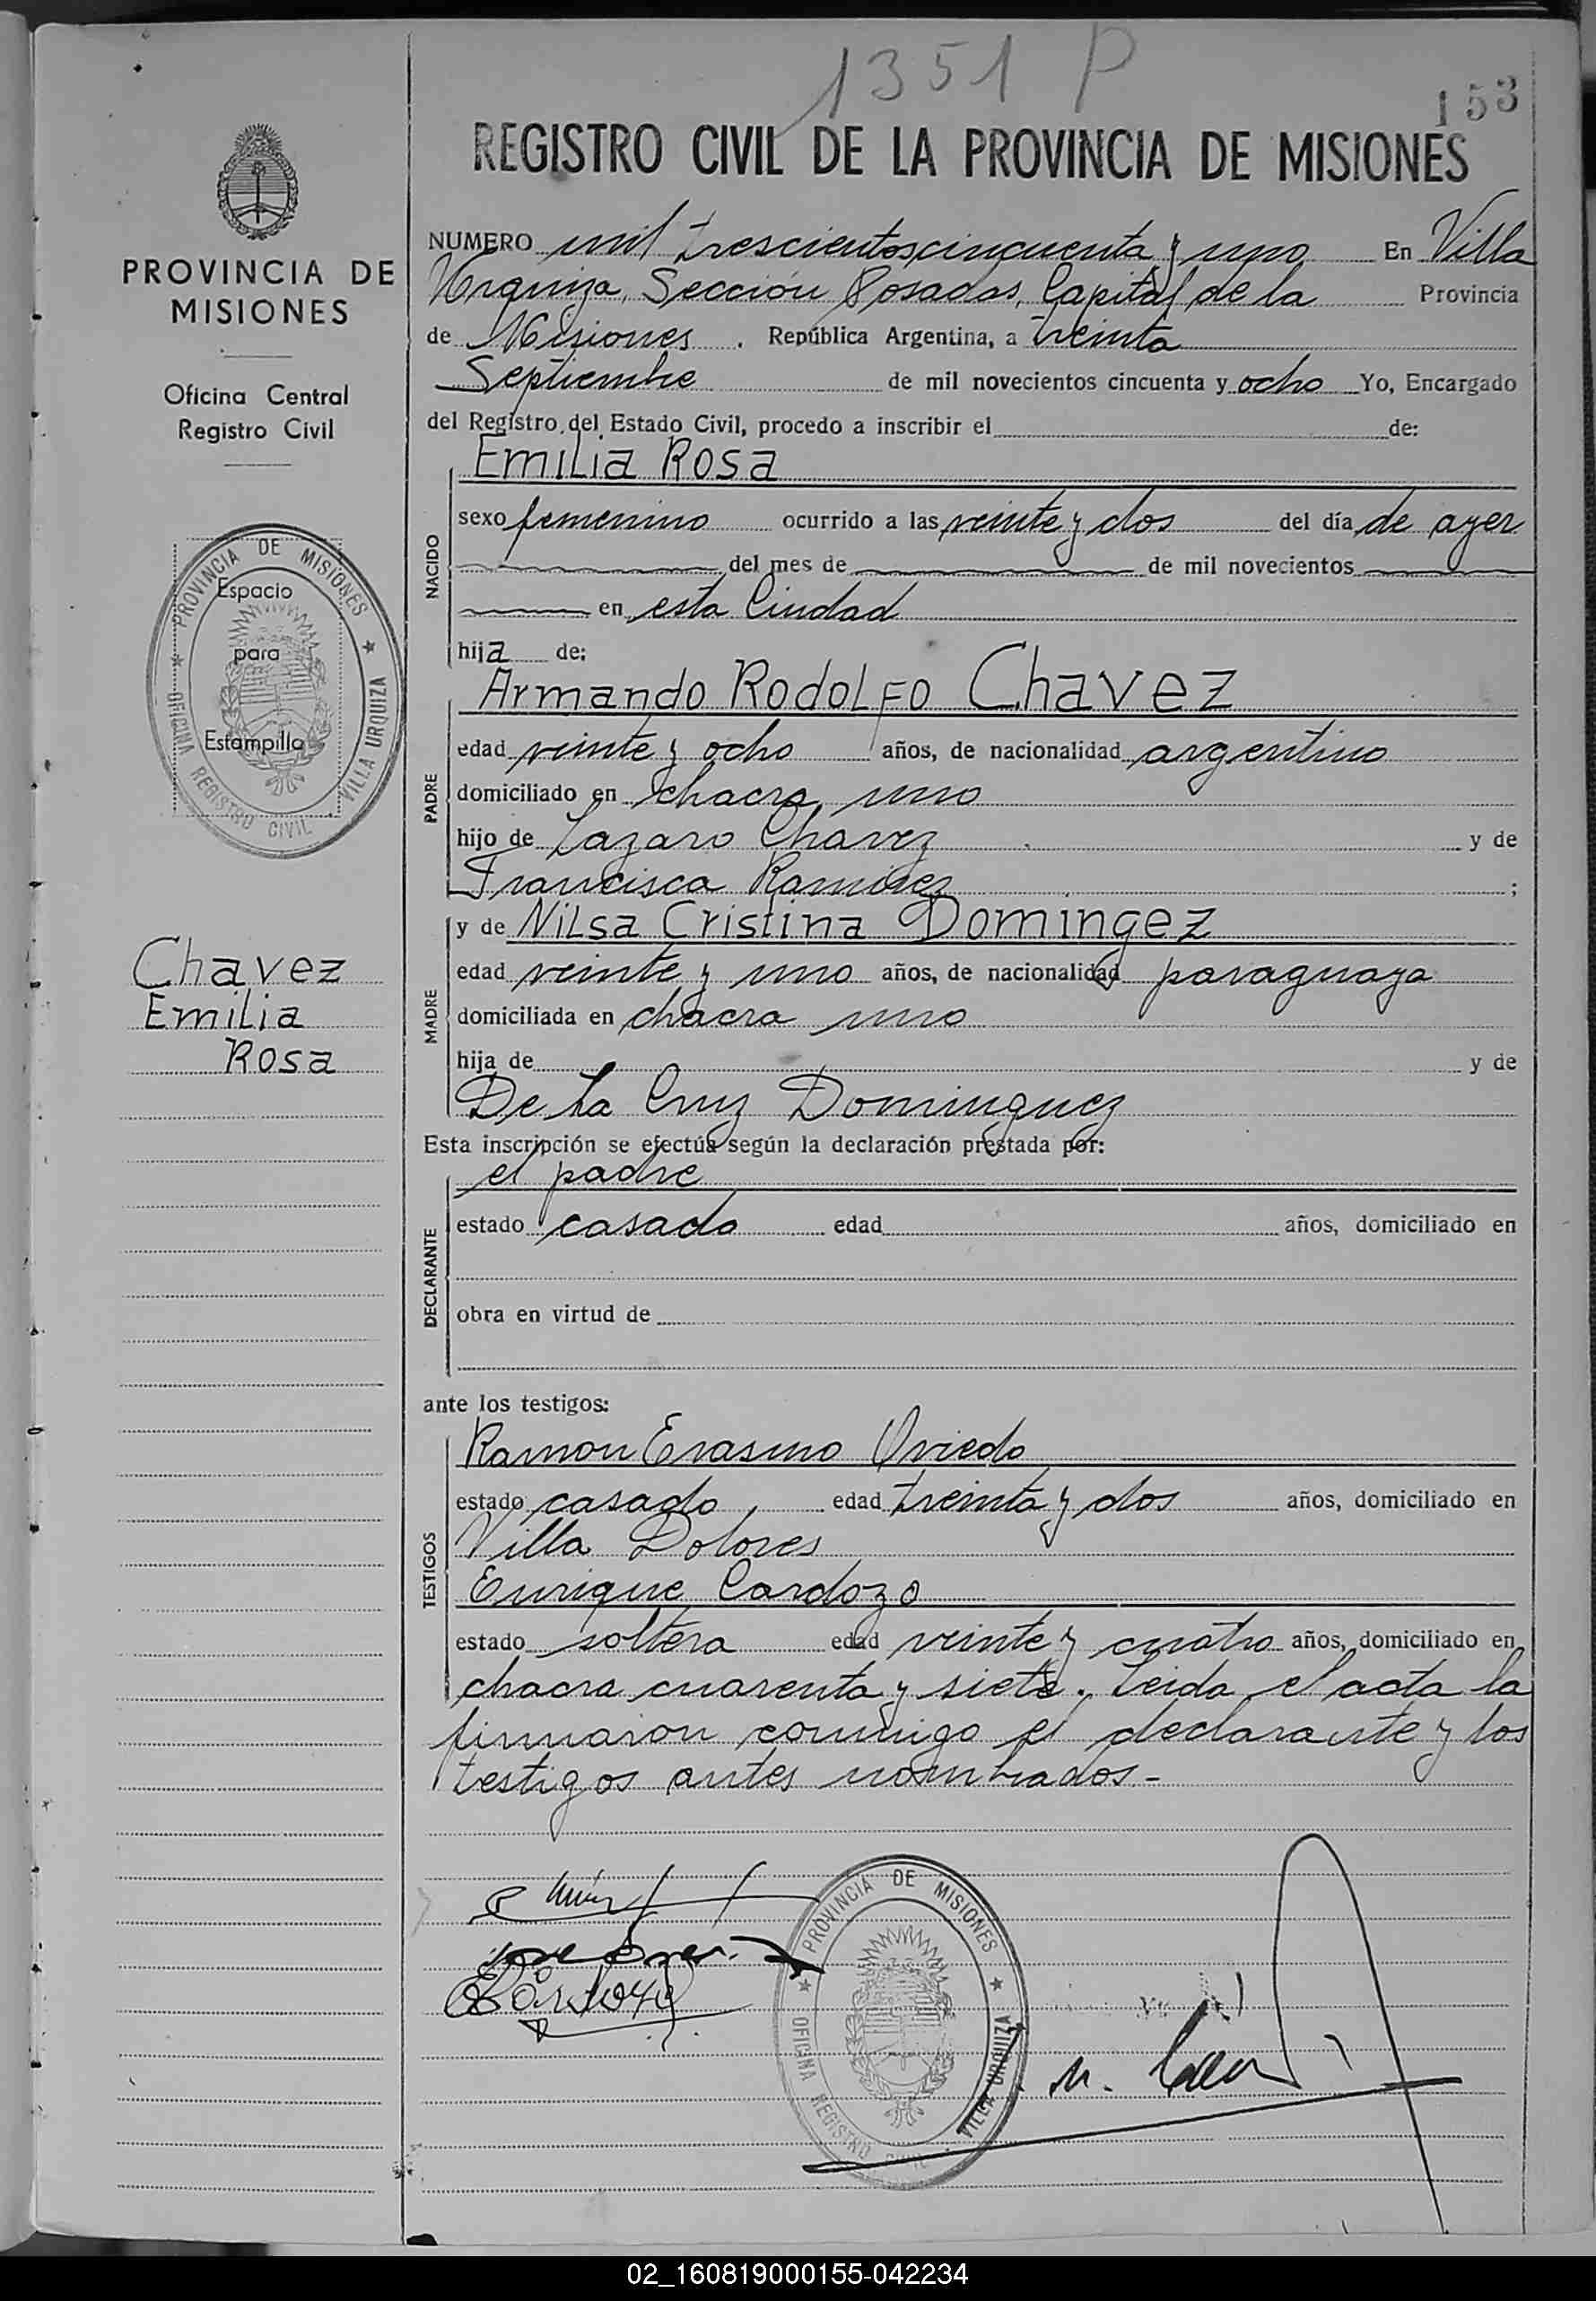 1351 P
153
REGISTRO CIVIL DE LA PROVINCIA DE MISIONES
PROVINCIA DE
MISIONES
Oficina Central
Registro Civil
PROVINCIA DE MISIONES
OFICINA REGISTRO CIVIL VILLA URQUIZA
Espacio
para
Estampilla
Chavez
Emilia
Rosa
NUMERO mil trescientos cincuenta y uno En Villa
Urquiza, Sección Posadas, Capital de la Provincia
de Misiones. República Argentina, a treinta
Septiembre de mil novecientos cincuenta y ocho Yo, Encargado
del Registro del Estado Civil, procedo a inscribir el de:
Emilia Rosa
NACIDO
sexo femenino ocurrido a las veinte y dos del día de ayer
del mes de de mil novecientos
en esta Ciudad
hija de:
Armando Rodolfo Chavez
PADRE
edad veinte y ocho años, de nacionalidad argentino
domiciliado en chacra uno
hijo de Lazaro Chavez y de
Francisca Ramirez ;
y de Nilsa Cristina Domingez
MADRE
edad veinte y uno años, de nacionalidad paraguaya
domiciliada en chacra uno
hija de y de
De La Cruz Dominguez
Esta inscripción se efectúa según la declaración prestada por:
el padre
DECLARANTE
estado casado edad años, domiciliado en
obra en virtud de
ante los testigos:
Ramon Erasmo Oviedo
TESTIGOS
estado casado, edad treinta y dos años, domiciliado en
Villa Dolores
Enrique Cardozo
estado soltera edad veinte y cuatro años, domiciliado en
chacra cuarenta y siete. Leida el acta la
firmaron conmigo el declarante y los
testigos antes nombrados -
PROVINCIA DE MISIONES
OFICINA REGISTRO CIVIL VILLA URQUIZA
02_160819000155-042234